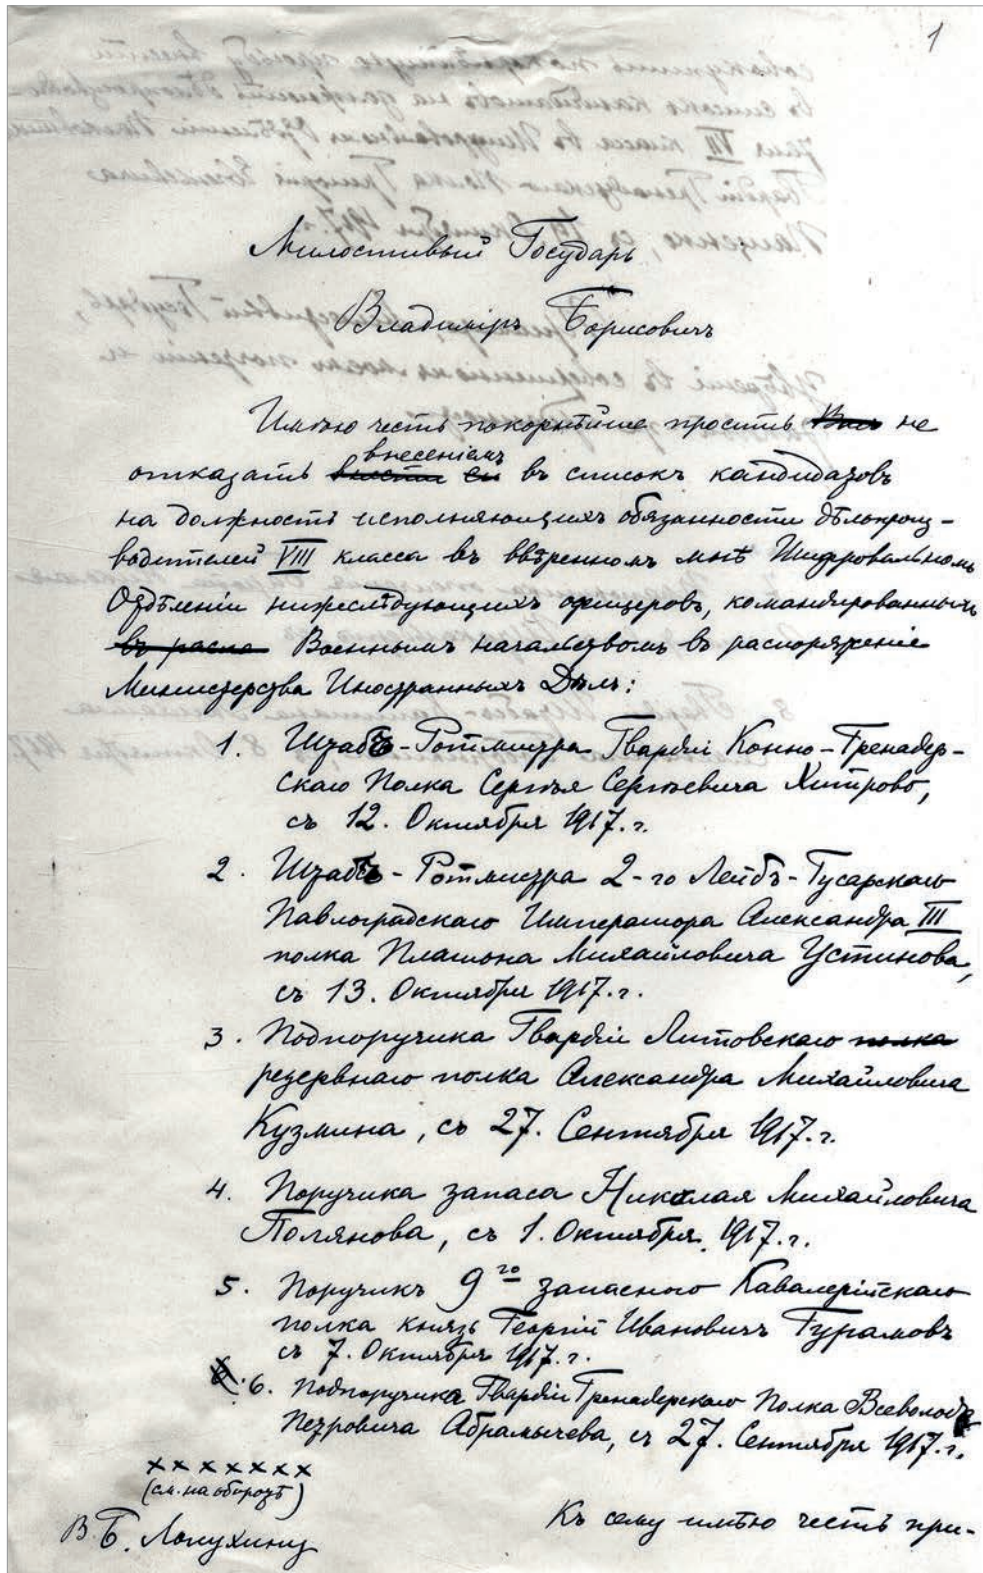 1
Милостивый Государь
Владиміръ Борисовичъ
Имѣю честь покорнѣйше просить Васъ не
внесеніемъ
отказать внести въ списокъ кандидатовъ
на должность исполняющихъ обязанности дѣлопроиз-
водителей VIII класса въ ввѣренномъ мнѣ Шифровальномъ
Отдѣленіи нижеслѣдующихъ офицеровъ, командированныхъ
въ распо Военнымъ начальствомъ въ распоряженіе
Министерства Иностранныхъ Дѣлъ:
1. Штабсъ-Ротмистра Гвардіи Конно-Гренадер-
скаго Полка Сергѣя Сергѣевича Хитрово,
съ 12. Октября 1917.г.
2. Штабсъ-Ротмистра 2-го Лейбъ-Гусарскаго
Павлоградскаго Императора Александра III
полка Платона Михайловича Устинова,
съ 13. Октября 1917.г.
3. Подпоручика Гвардіи Литовскаго полка
резервнаго полка Александра Михайловича
Кузмина, съ 27. Сентября 1917.г.
4. Поручика запаса Николая Михайловича
Полянова, съ 1. Октября 1917.г.
5. Поручикъ 9го запасного Кавалерійскаго
полка князь Георгій Ивановичъ Гурамовъ
съ 7. Октября 1917.г.
6. Подпоручика Гвардіи Гренадерскаго Полка Всеволода
Петровича Абрамычева, съ 27. Сентября 1917.г.
ххххххх
(см. на оборотѣ)
В. Б. Лопухину
Къ сему имѣю честь при-